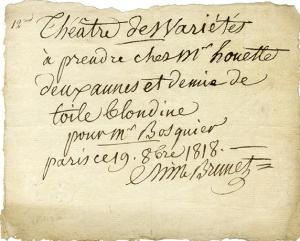 12 Théâtre des Variétés
à prendre chez Mr houette
deux aunes et demie de
toile blondine
pour Mr Bosquier
paris ce 19. 8bre 1818.
Brunet